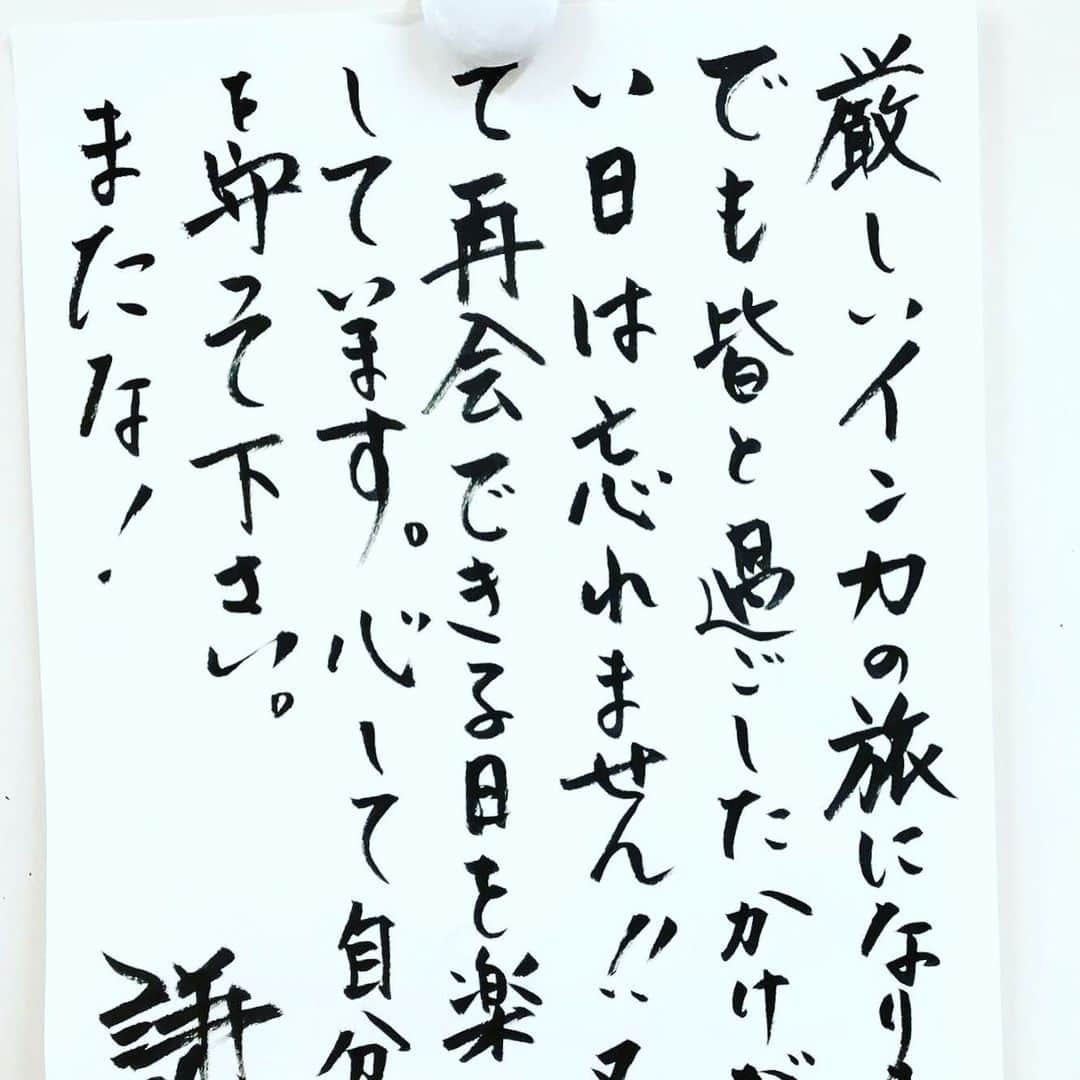 厳しいインカの旅になりま
でも皆と過ごしたかけが
い日は忘れません!!又
て再会できる日を楽
しています。心して自分
を守って下さい。
またな!
謙